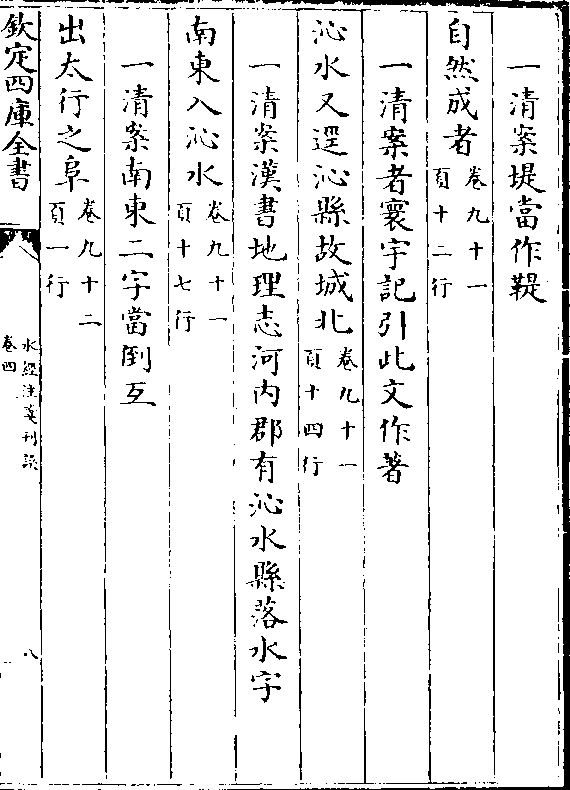 一清案堤當作鞮
自然成者卷九十一頁十二行
一清案者寰宇記引此文作著
沁水又逕沁縣故城北卷九十一頁十四行
一清案漢書地理志河内郡有沁水縣落水字
南東入沁水卷九十一頁十七行
一清案南東二字當倒互
出太行之阜卷九十二頁一行
欽定四庫全書
水經注箋刊誤
卷四
八